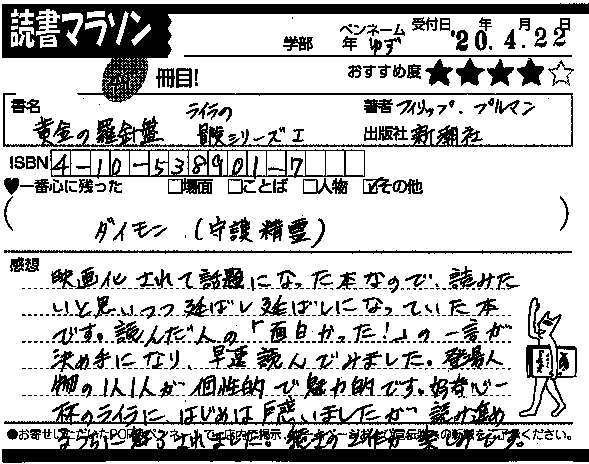 読書マラソン
学部 年 ペンネーム ゆず 受付日 '20年.4月.22日
冊目! おすすめ度 ★★★★☆
書名 黄金の羅針盤 ライラの冒険シリーズⅠ
著者 フィリップ・プルマン
出版社 新潮社
ISBN 4-10-538901-7
♥一番心に残った □場面 □ことば □人物 ☑その他
( ダイモン (守護精霊) )
感想
映画化されて話題になった本なので、読みた
いと思いつつ延ばし延ばしになっていた本
です。読んだ人の「面白かった!」の一言が
決め手になり、早速読んでみました。登場人
物の1人1人が個性的で魅力的です。好奇心一
杯のライラに、はじめは戸惑いましたが 読み進め
るうちに魅了されました。続きの2作が楽しみです。
●お寄せいただいたPOP